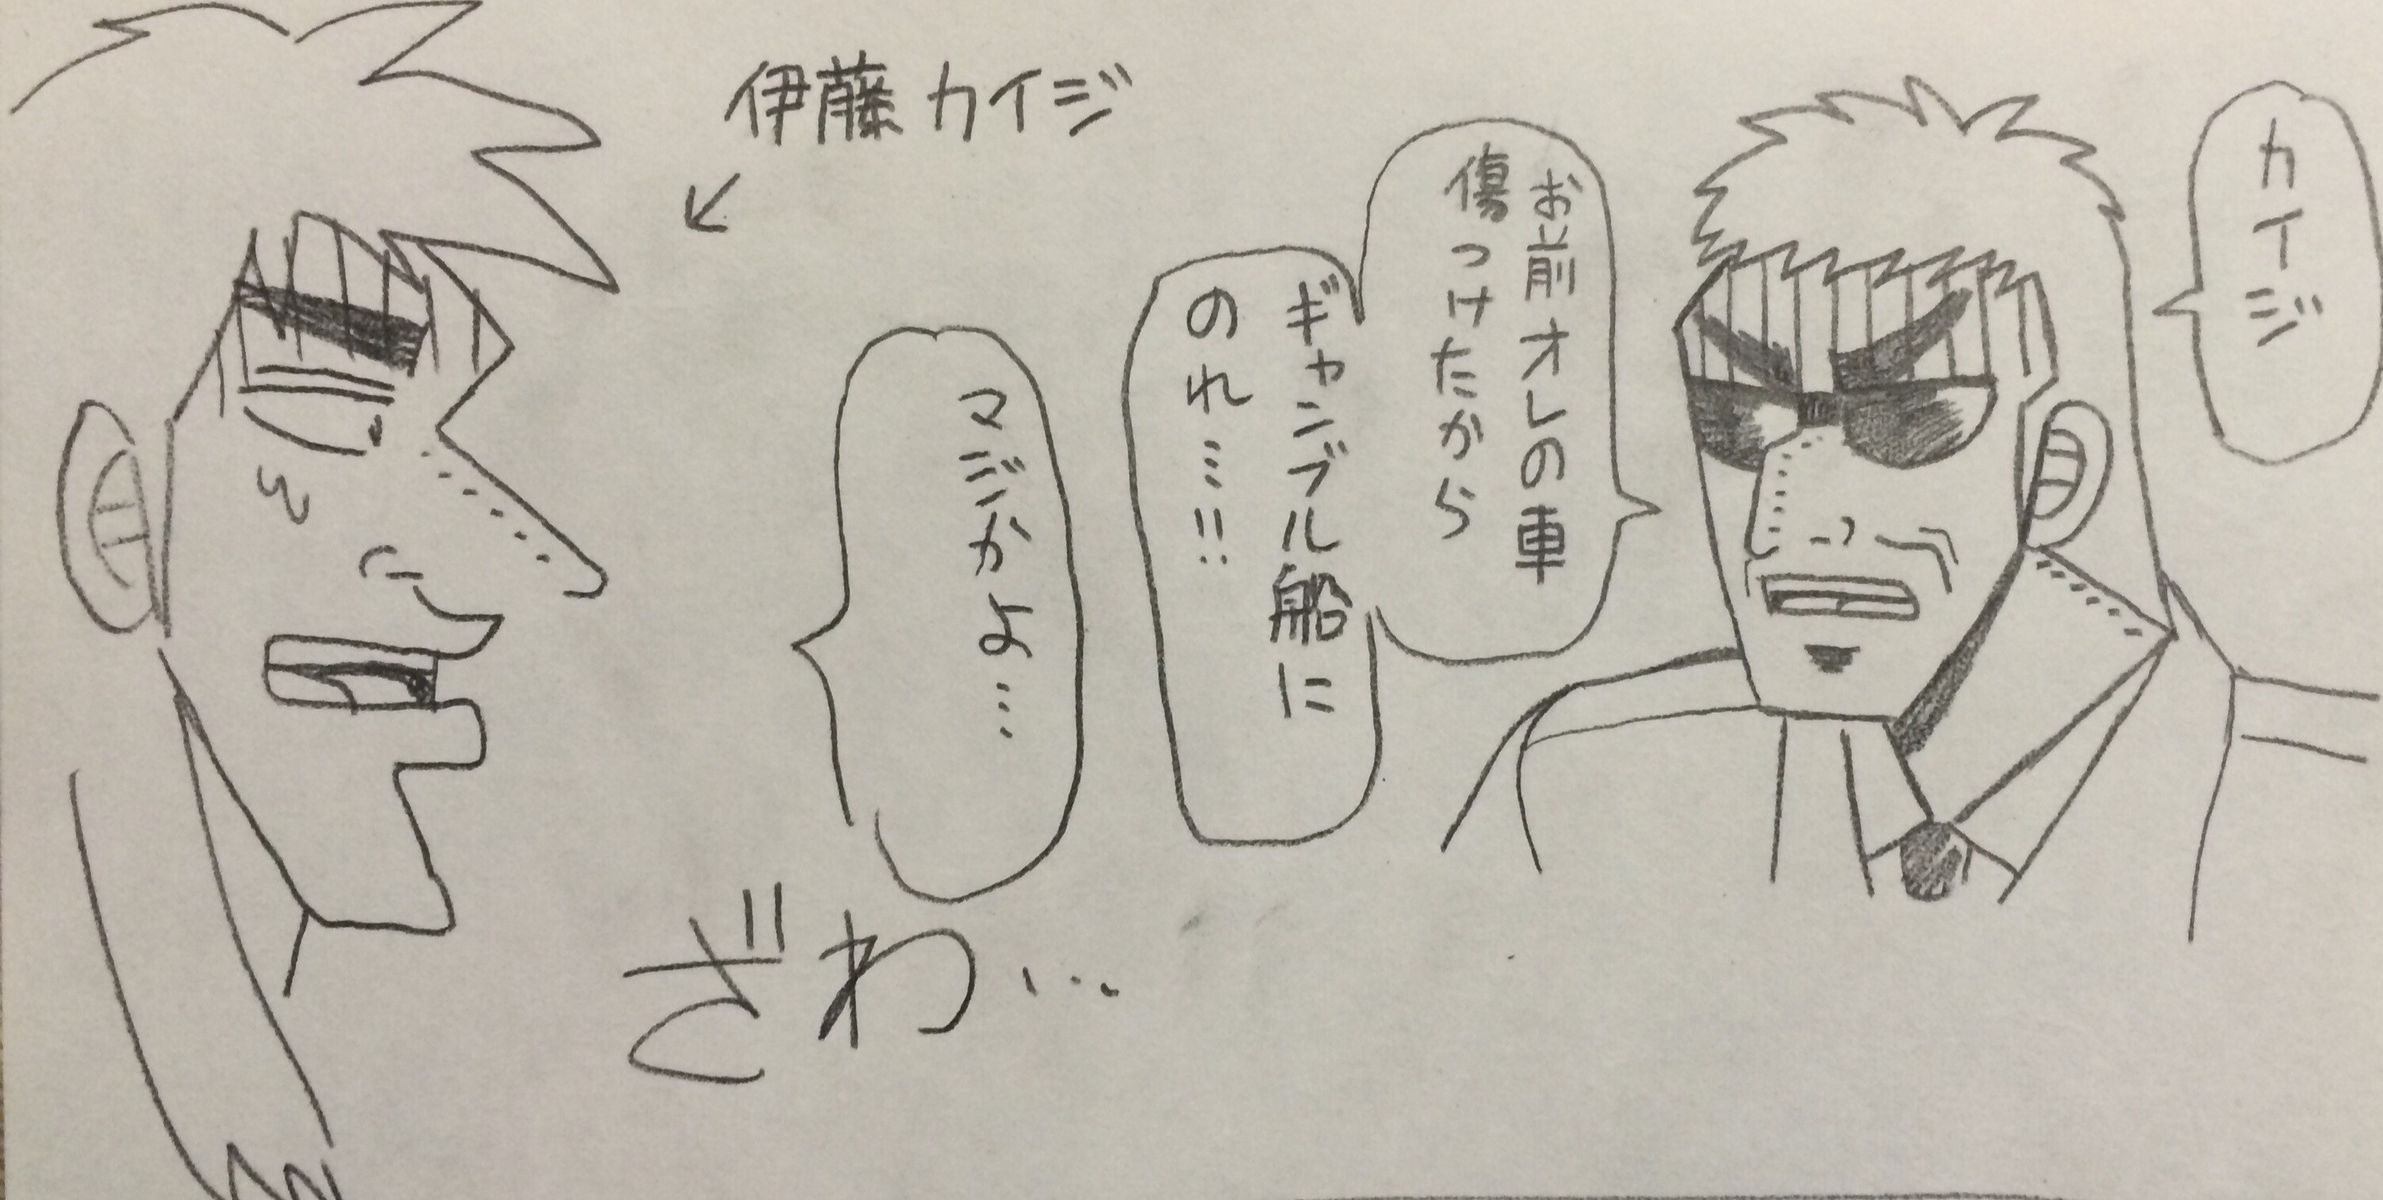 伊藤カイジ
カイジ
お前オレの車
傷つけたから
ギャンブル船に
のれ…!!
マジかよ…
ざわ…